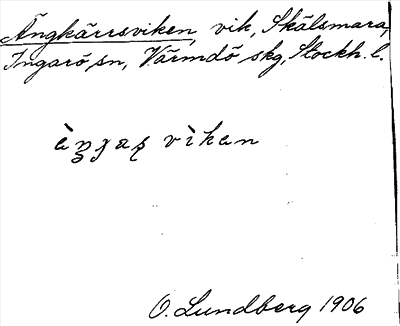 Ängkärrsviken, vik, Skälsmara,
Ingarö sn, Värmdö skg, Stockh. l.
vìken
O. Lundberg 1906